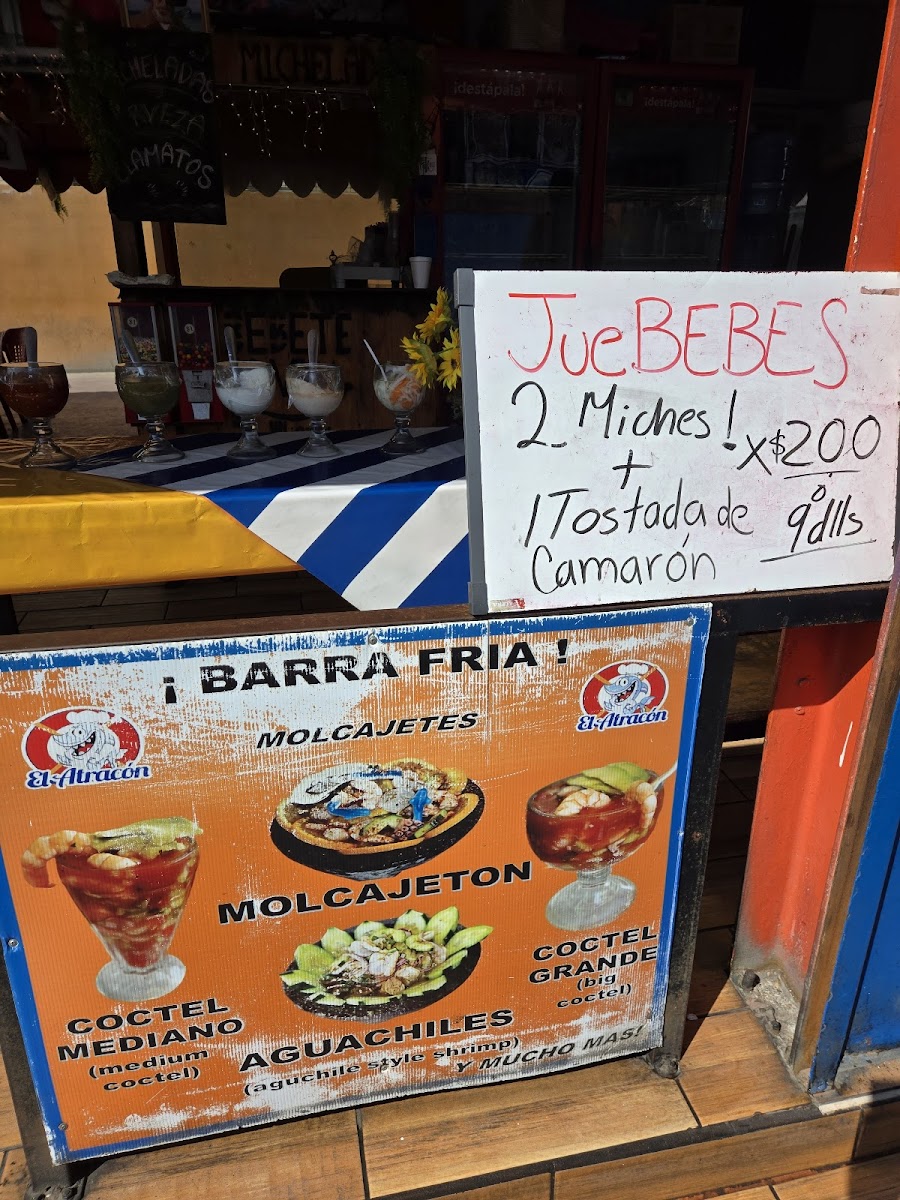 CHELADAS
MICHELAD
¡destápala!
¡destápala!
CLAMATOS
JueBEBES
2 Miches! x$200
+
1 Tostada de
Camarón
9 dlls
¡ BARRA FRIA !
MOLCAJETES
El Atracón
El Atracón
MOLCAJETON
COCTEL
GRANDE
(big
coctel)
COCTEL
MEDIANO
(medium
coctel)
AGUACHILES
(aguchile style shrimp)
Y MUCHO MAS!